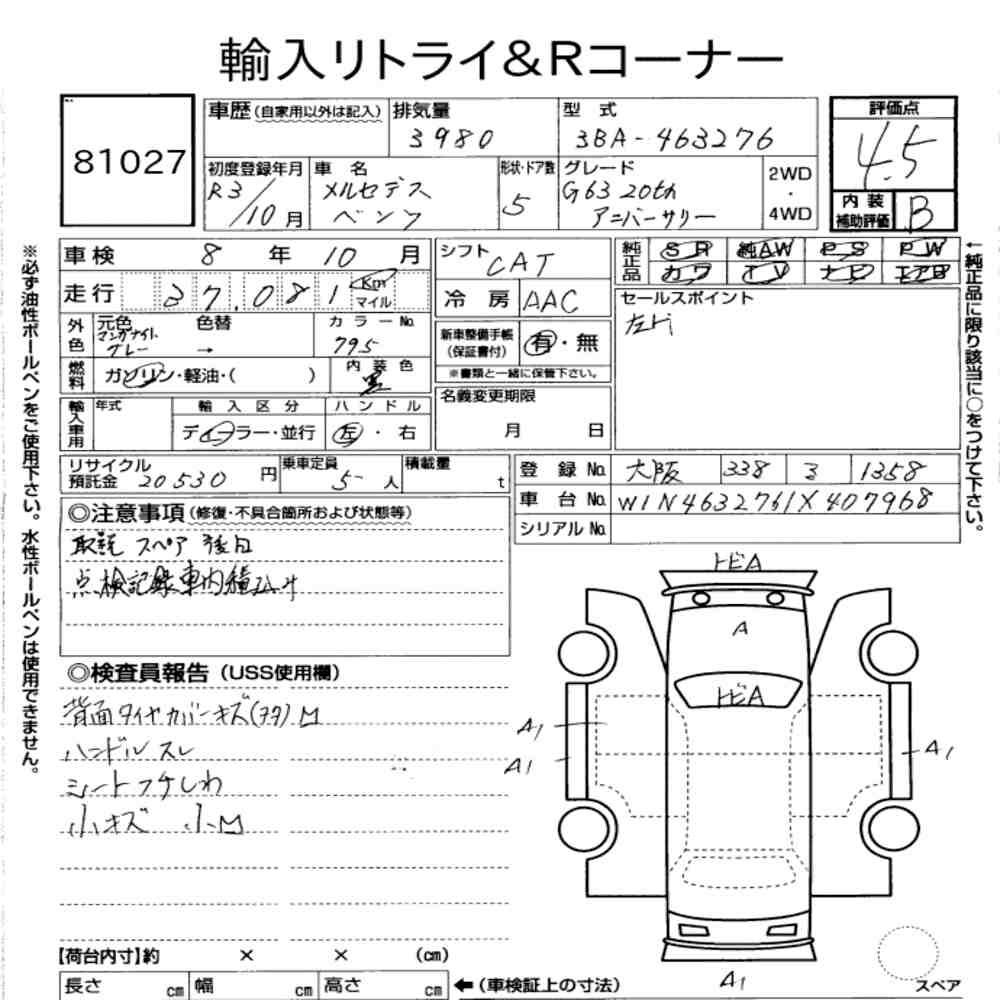 輸入リトライ&Rコーナー
81027
車歴(自家用以外は記入)
排気量
3980
型 式
3BA-463276
評価点
4.5
内装
補助評価
B
初度登録年月
R3/10月
車 名
メルセデス
ベンツ
形状・ドア数
5
グレード
G63 20th
アニバーサリー
2WD
・
4WD
車検 8 年 10 月
走行 37,081 Km
マイル
外色
元色
マンガナイト
グレー
色替
→
カラーNo.
795
燃料
ガソリン・軽油・( )
内装色
黒
輸入車用
年式
輸入区分
ディーラー・並行
ハンドル
左・右
シフト
CAT
冷房
AAC
新車整備手帳
(保証書付)
有・無
※書類と一緒に保管下さい。
名義変更期限
月 日
純正品
SR 純AW PS PW
カワ TV ナビ エアB
セールスポイント
左H
リサイクル
預託金
20530円
乗車定員
5人
積載量
t
登録No.
大阪 338 る 1358
車台No.
W1N4632761X407968
シリアルNo.
◎注意事項(修復・不具合箇所および状態等)
取説 スペア 後日
点検記録車内積込み
◎検査員報告(USS使用欄)
背面タイヤカバーキズ(フタ)M
ハンドルスレ
シートフチしわ
小キズ 小M
【荷台内寸】約 × × (cm)
長さ cm 幅 cm 高さ cm
←(車検証上の寸法)
トビA
A
トビA
A1
A1
A1
A1
スペア
※必ず油性ボールペンをご使用下さい。水性ボールペンは使用できません。
←純正品に限り該当に○をつけて下さい。